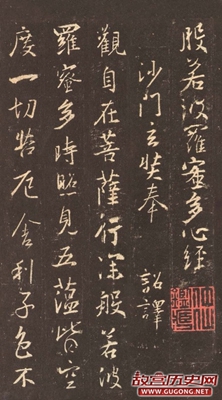 般若波羅蜜多心經
沙門玄奘奉 詔譯
觀自在菩薩行深般若波
羅蜜多時照見五蘊皆空
度一切苦厄舍利子色不
故宫历史网
WWW.GUGONG.NET